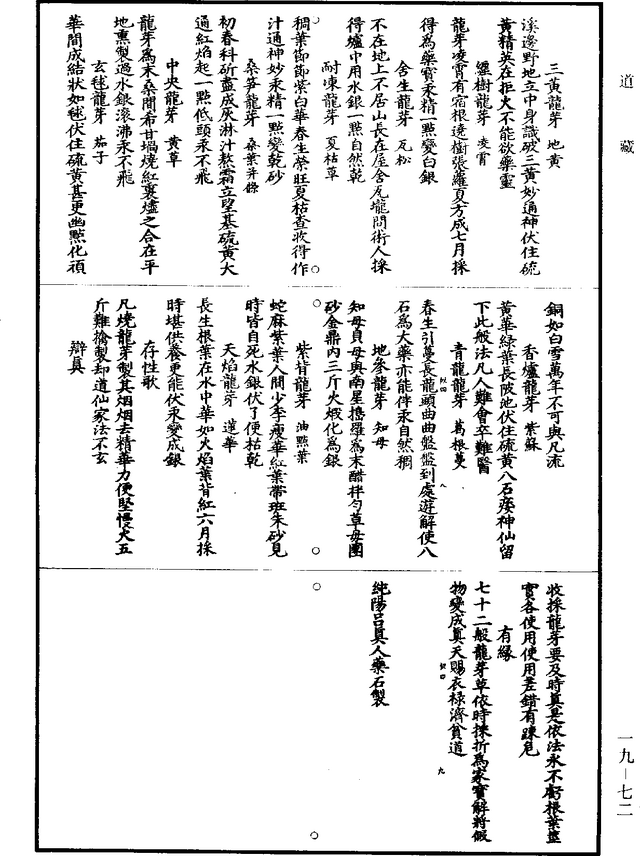 道藏
三黃龍芽　地黃
溪邊野地立中身識破三黃妙通神伏住硫
黃精英在拒火不能欲藥靈
纏樹龍芽　凌霄
龍芽凌霄有宿根遶樹張蘿夏方成七月採
得為藥寶汞精一點變白銀
含生龍芽　瓦松
不在地上不居山長在屋舍瓦壠間術人採
得爐中用水銀一點自然乾
耐凍龍芽　夏枯草
稠葉節節紫白華春生榮旺夏枯查收得作
汁通神妙汞精一點變乾砂
桑笋龍芽　桑葉并條
初春科斫盡成灰淋汁熬霜立堅基硫黃大
通紅焰起一點低頭汞不飛
中央龍芽　黃草
龍芽為末桑間希甘堝燒紅裏爐之合在平
地熏製過水銀滾沸汞不飛
玄毬龍芽　茄子
華間成結狀如毬伏住硫黃甚更幽點化頑
銅如白雪萬年不可與凡流
香爐龍芽　紫蘇
黃華綠葉長陂池伏住硫黃八石痿神仙留
下此般法凡人難會卒難醫
青龍龍芽　葛根蔓
春生引蔓長龍頭曲曲盤盤到處遊解使八
石為大藥亦能伴汞自然稠
地參龍芽　知母
知母貝母與南星擣羅為末醋拌勻草母團
砂金鼎內三斤火煅化為銀
紫背龍芽　油點葉
蛇麻紫葉人間少李瘦華紅葉帶班朱砂見
時皆自死水銀伏了便枯乾
天焰龍芽　蓮華
長生根葉在水中華如火焰葉背紅六月採
時堪供養更能伏汞變成銀
存性歌
凡燒龍芽製其烟烟去精華力便堅慢火五
斤難擒製却道仙家法不玄
辯真
收採龍芽要及時真是依法永不虧根葉莖
實各使用使用差錯有踈危
有緣
七十二般龍芽草依時揀折為家寶解將假
物變成真天賜衣祿濟貧道
純陽呂真人藥石製
一九—七二